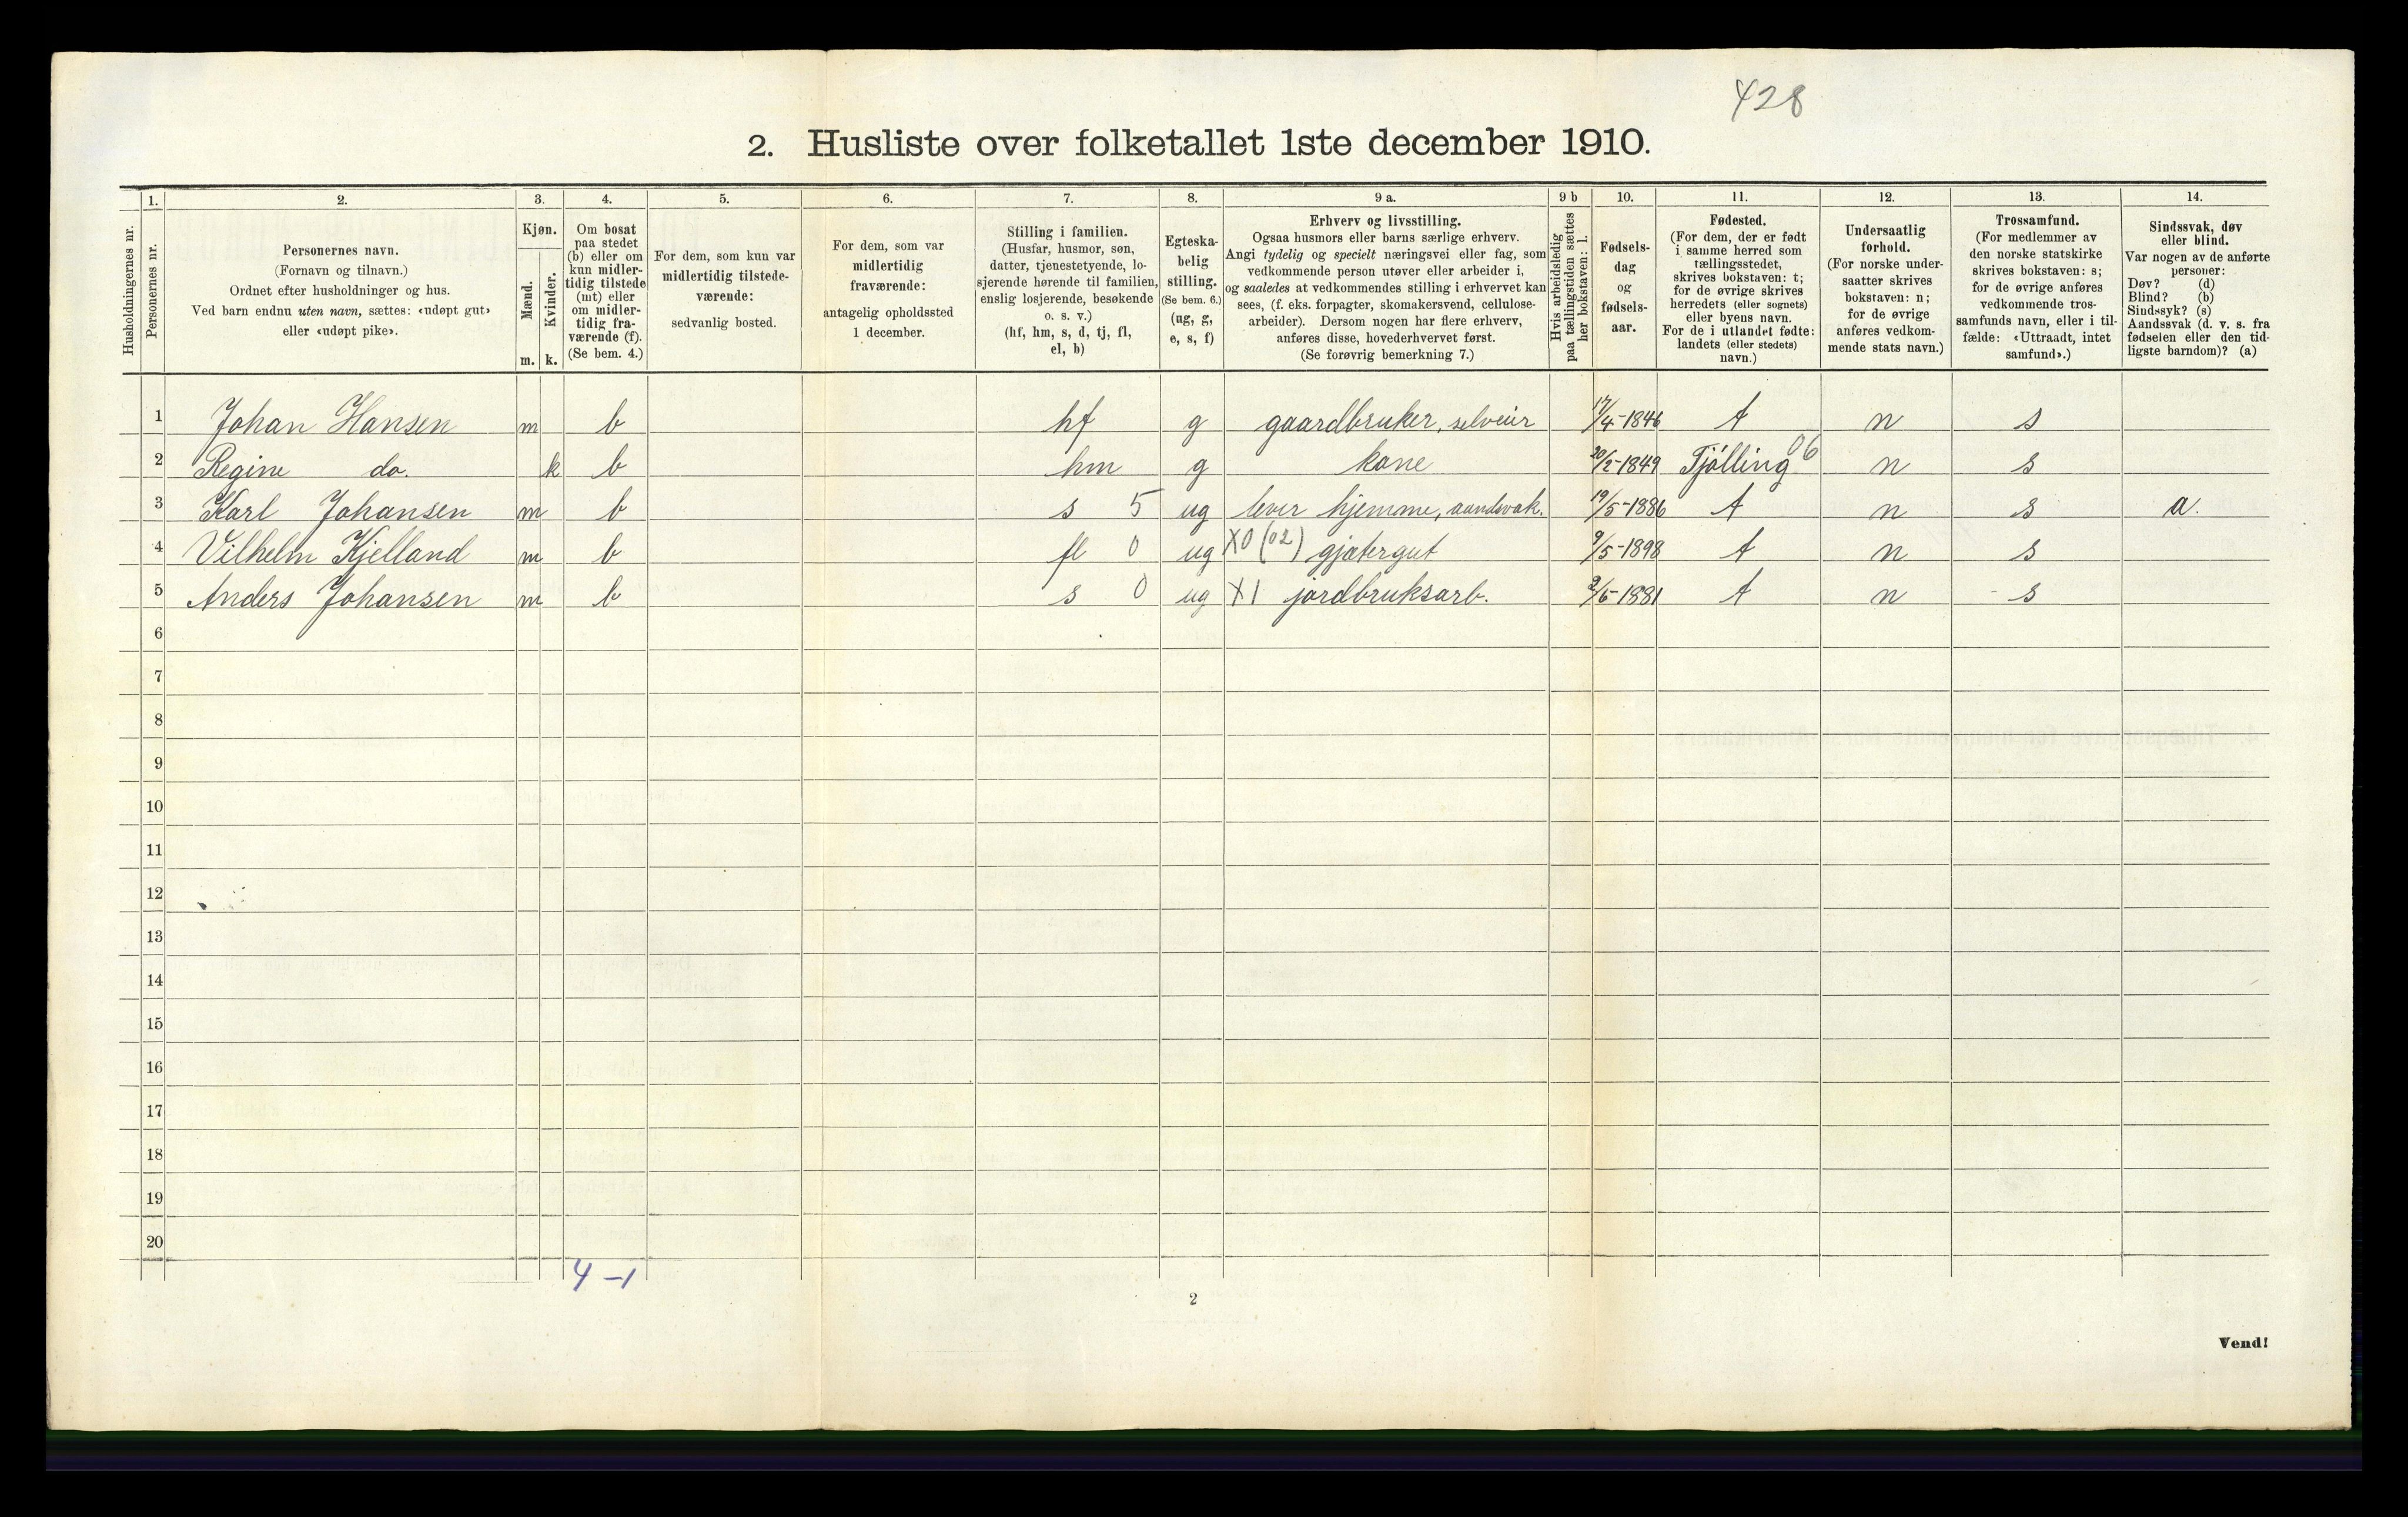 428
2. Husliste over folketallet 1ste december 1910.
Husholdningernes nr.
1.
Personernes nr.
2.
Personernes navn.
(Fornavn og tilnavn.)
Ordnet efter husholdninger og hus.
Ved barn endnu uten navn, sættes: «udøpt gut»
eller «udøpt pike».
3.
Kjøn.
Mænd.
Kvinder.
m. k.
4.
Om bosat
paa stedet
(b) eller om
kun midler-
tidig tilstede
(mt) eller
om midler-
tidig fra-
værende (f).
(Se bem. 4.)
5.
For dem, som kun var
midlertidig tilstede-
værende:
sedvanlig bosted.
6.
For dem, som var
midlertidig
fraværende:
antagelig opholdssted
1 december.
7.
Stilling i familien.
(Husfar, husmor, søn,
datter, tjenestetyende, lo-
sjerende hørende til familien,
enslig losjerende, besøkende
o. s. v.)
(hf, hm, s, d, tj, fl,
el, b)
8.
Egteska-
belig
stilling.
(Se bem. 6.)
(ug, g,
e, s, f)
9 a.
Erhverv og livsstilling.
Ogsaa husmors eller barns særlige erhverv.
Angi tydelig og specielt næringsvei eller fag, som
vedkommende person utøver eller arbeider i,
og saaledes at vedkommendes stilling i erhvervet kan
sees, (f. eks. forpagter, skomakersvend, cellulose-
arbeider). Dersom nogen har flere erhverv,
anføres disse, hovederhvervet først.
(Se forøvrig bemerkning 7.)
9 b
Hvis arbeidsledig
paa tællingstiden sættes
her bokstaven: l.
10.
Fødsels-
dag
og
fødsels-
aar.
11.
Fødested.
(For dem, der er født
i samme herred som
tællingsstedet,
skrives bokstaven: t;
for de øvrige skrives
herredets (eller sognets)
eller byens navn.
For de i utlandet fødte:
landets (eller stedets)
navn.)
12.
Undersaatlig
forhold.
(For norske under-
saatter skrives
bokstaven: n;
for de øvrige
anføres vedkom-
mende stats navn.)
13.
Trossamfund.
(For medlemmer av
den norske statskirke
skrives bokstaven: s;
for de øvrige anføres
vedkommende tros-
samfunds navn, eller i til-
fælde: «Uttraadt, intet
samfund».)
14.
Sindssvak, døv
eller blind.
Var nogen av de anførte
personer:
Døv? (d)
Blind? (b)
Sindssyk? (s)
Aandssvak (d. v. s. fra
fødselen eller den tid-
ligste barndom)? (a)
1 Johan Hansen m b hf g gaardbruker, selveier 17/4-1846 t n s
2 Regine do. k b hm g kone 20/2-1849 Tjölling 06 n s
3 Karl Johansen m b s 5 ug lever hjemme, aandsvak. 19/5-1886 t n s a.
4 Vilhelm Kjelland m b fl 0 ug X0 (02) gjætergut 9/5-1898 t n s
5 Anders Johansen m b s 0 ug X1 jordbruksarb. 2/6-1881 t n s
6
7
8
9
10
11
12
13
14
15
16
17
18
19
20
4-1
2
Vend!